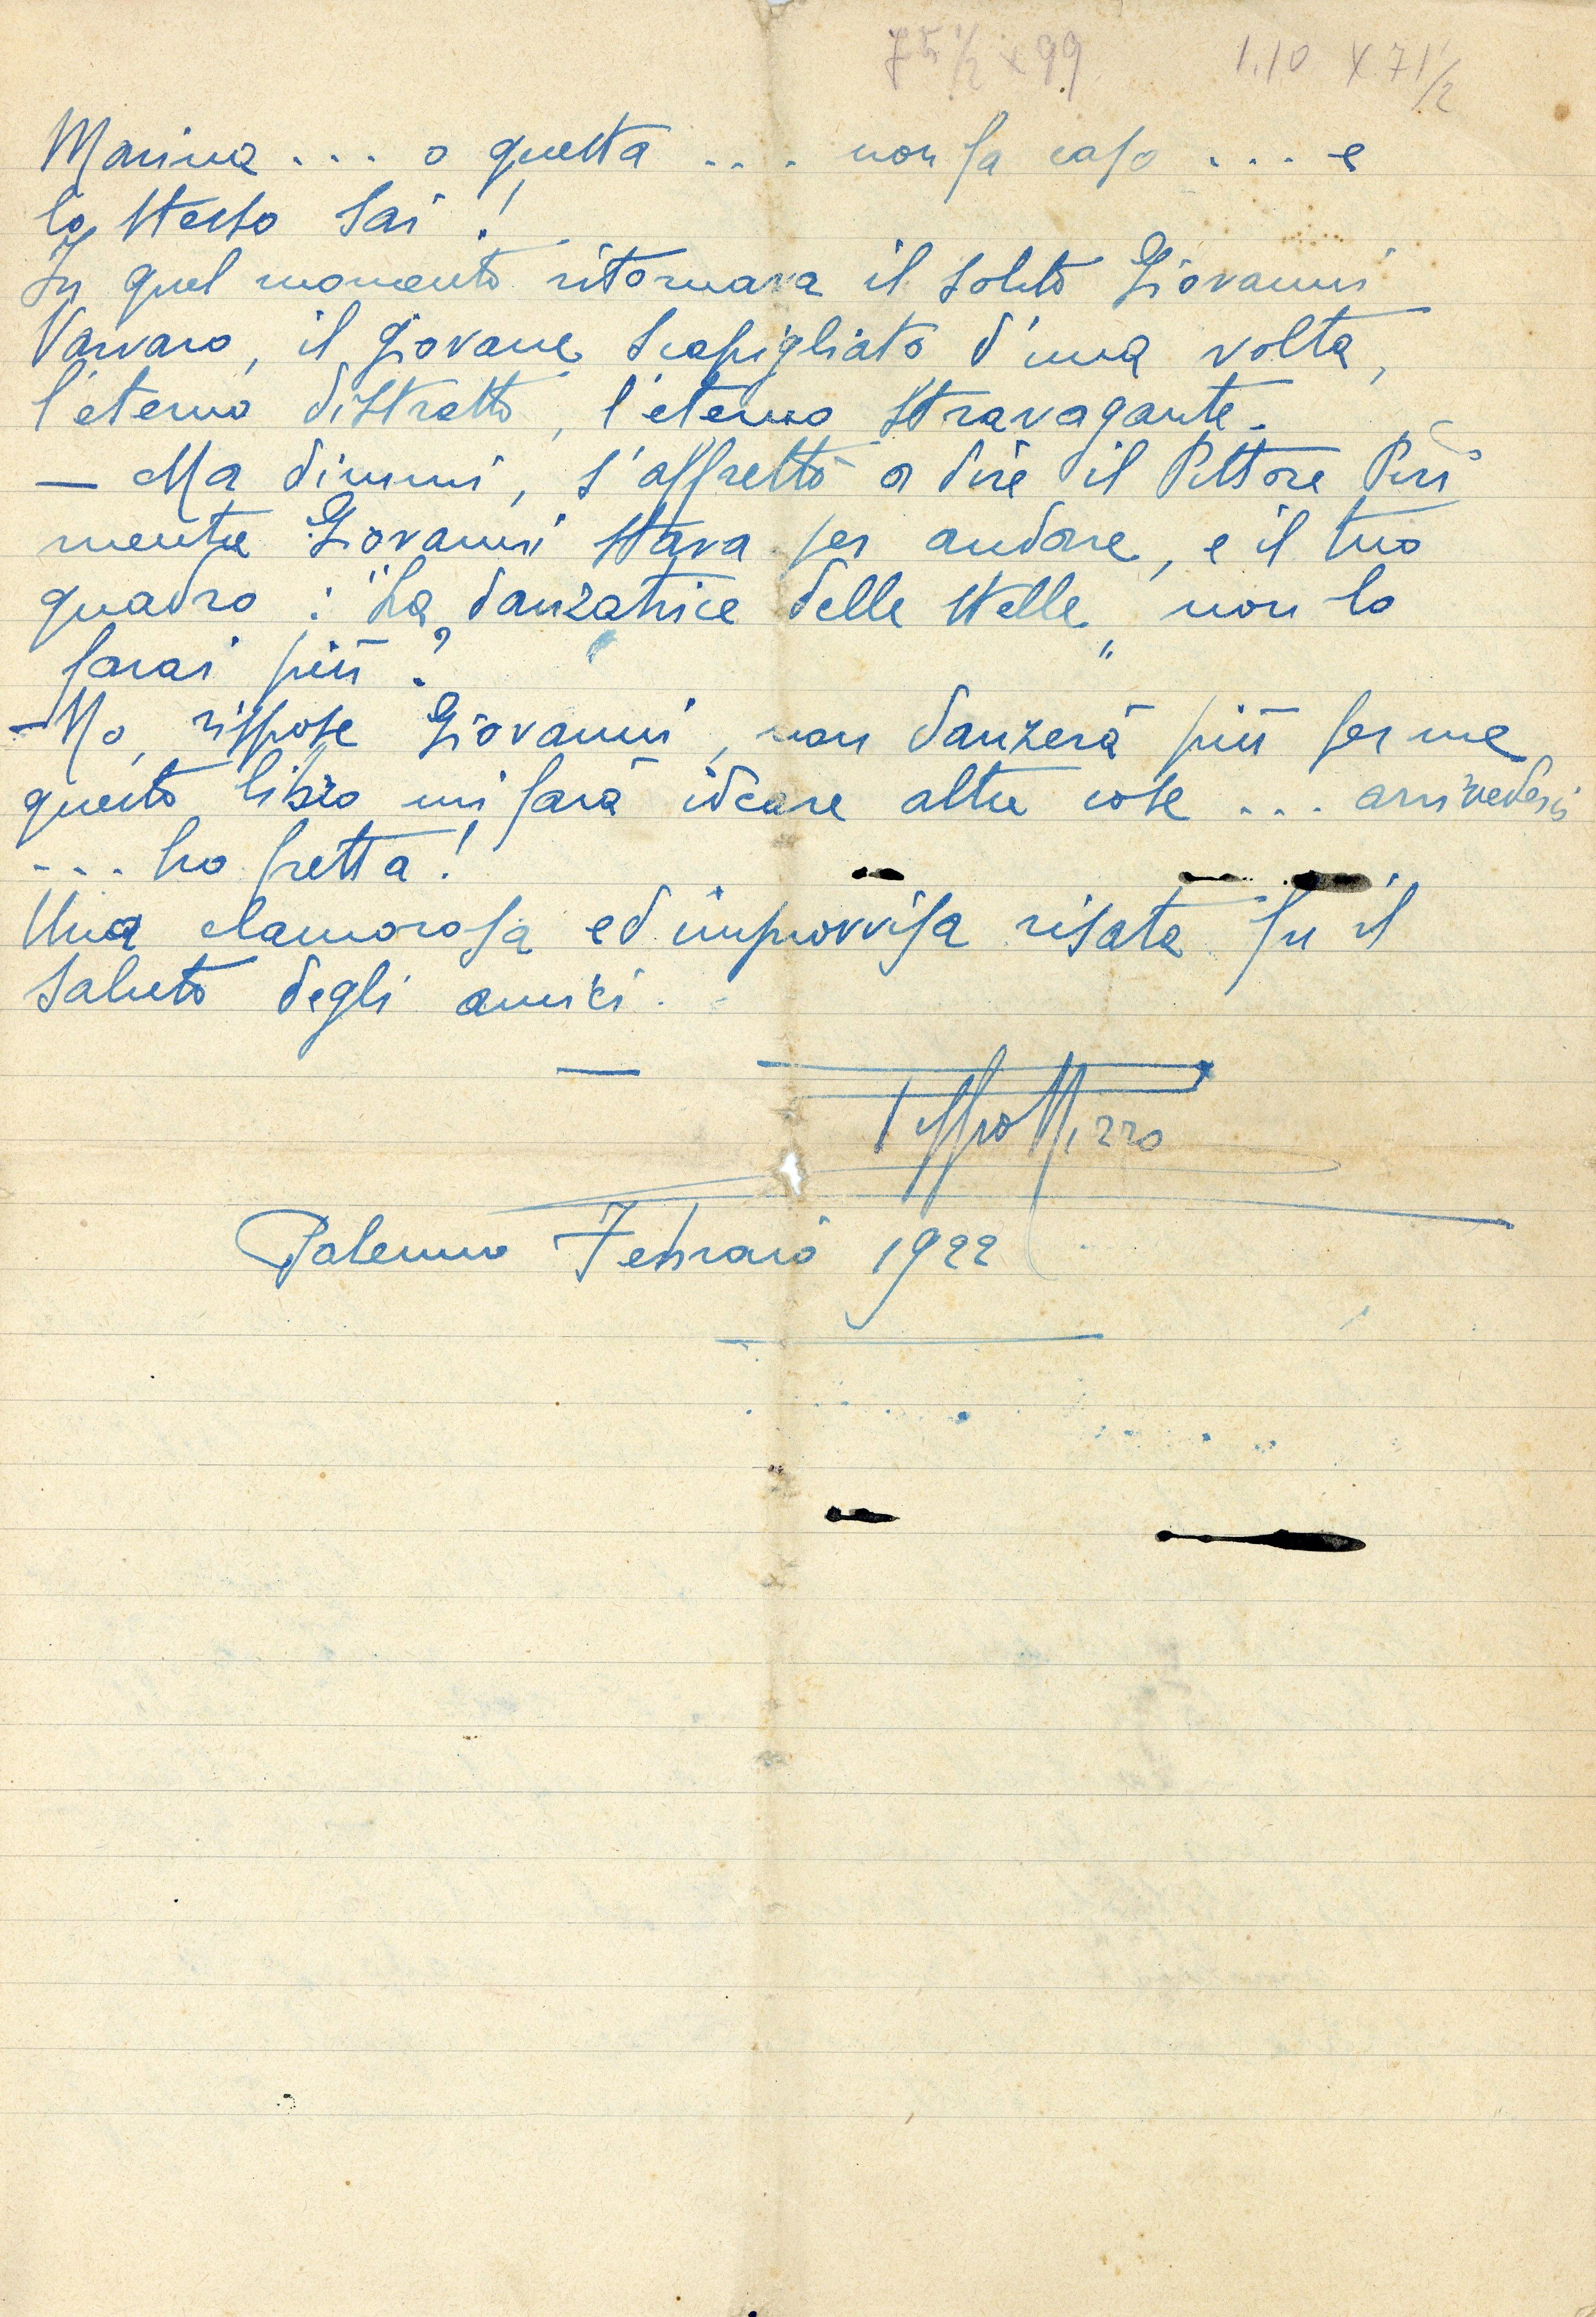 75 1/2 x 99 1.10 x 71 1/2
Marina ... o questa ... non fa caso .... e
lo stesso sai !
In quel momento ritornava il solito Giovanni
Varvaro, il giovane scapigliato d'una volta,
l'eterno distratto, l'eterno stravagante.
— Ma dimmi, s'affrettò a dire il Pittore
mentre Giovanni stava per andare, e il tuo
quadro : "La danzatrice delle stelle" non lo
farai più ?
— No, rispose Giovanni, non danzerà più per me
questo libro mi farà ideare altre cose ... arrivederci
... ho fretta !
Una clamorosa ed improvvisa risata fu il
saluto degli amici.
—
Pippo Rizzo
Palermo Febraio 1922